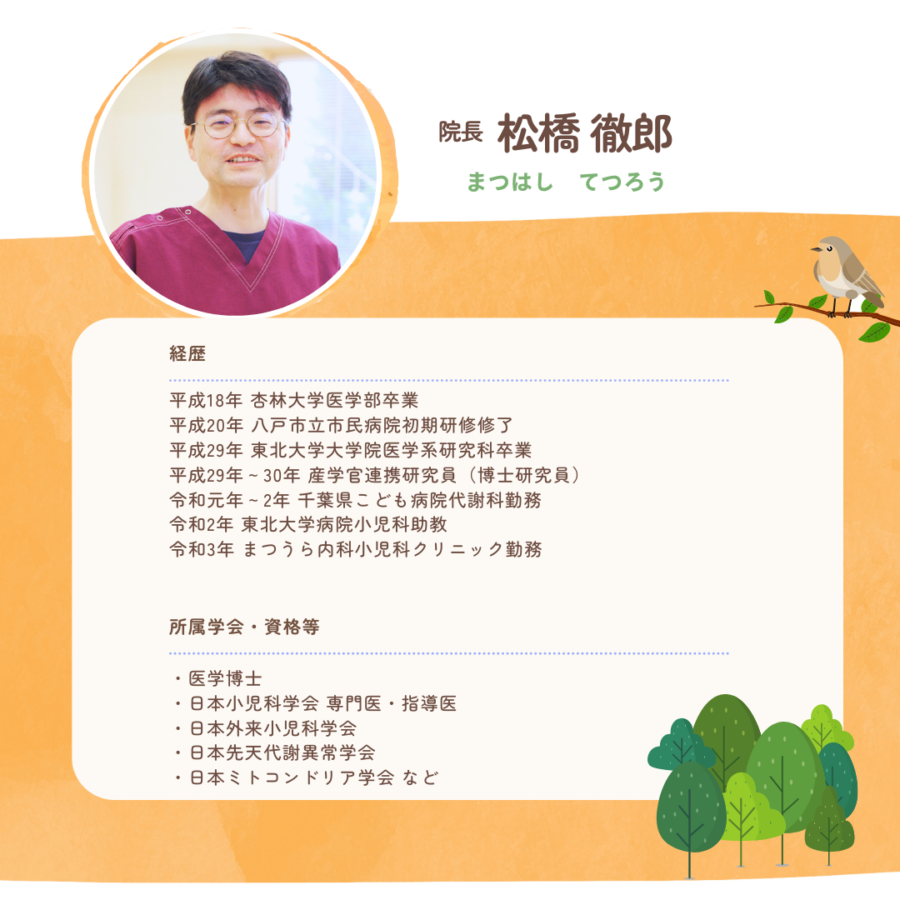 院長 松橋 徹郎
まつはし てつろう
経歴
平成18年 杏林大学医学部卒業
平成20年 八戸市立市民病院初期研修修了
平成29年 東北大学大学院医学系研究科卒業
平成29年~30年 産学官連携研究員（博士研究員）
令和元年~2年 千葉県こども病院代謝科勤務
令和2年 東北大学病院小児科助教
令和3年 まつうら内科小児科クリニック勤務
所属学会・資格等
・医学博士
・日本小児科学会 専門医・指導医
・日本外来小児科学会
・日本先天代謝異常学会
・日本ミトコンドリア学会 など